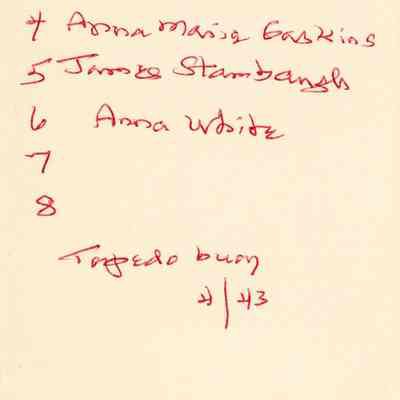 4 Anna Maria Gaskins
5 James Stambaugh
6 Anna White
7
8
Torpedo buoy
4 | 43